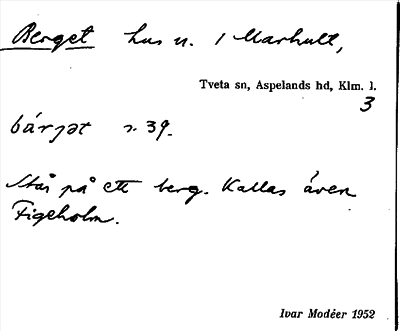 Berget hus n. / Marhult,
Tveta sn, Aspelands hd, Klm. l.
3
bárjət s. 39.
Står på ett berg. Kallas även
Figeholm.
Ivar Modéer 1952